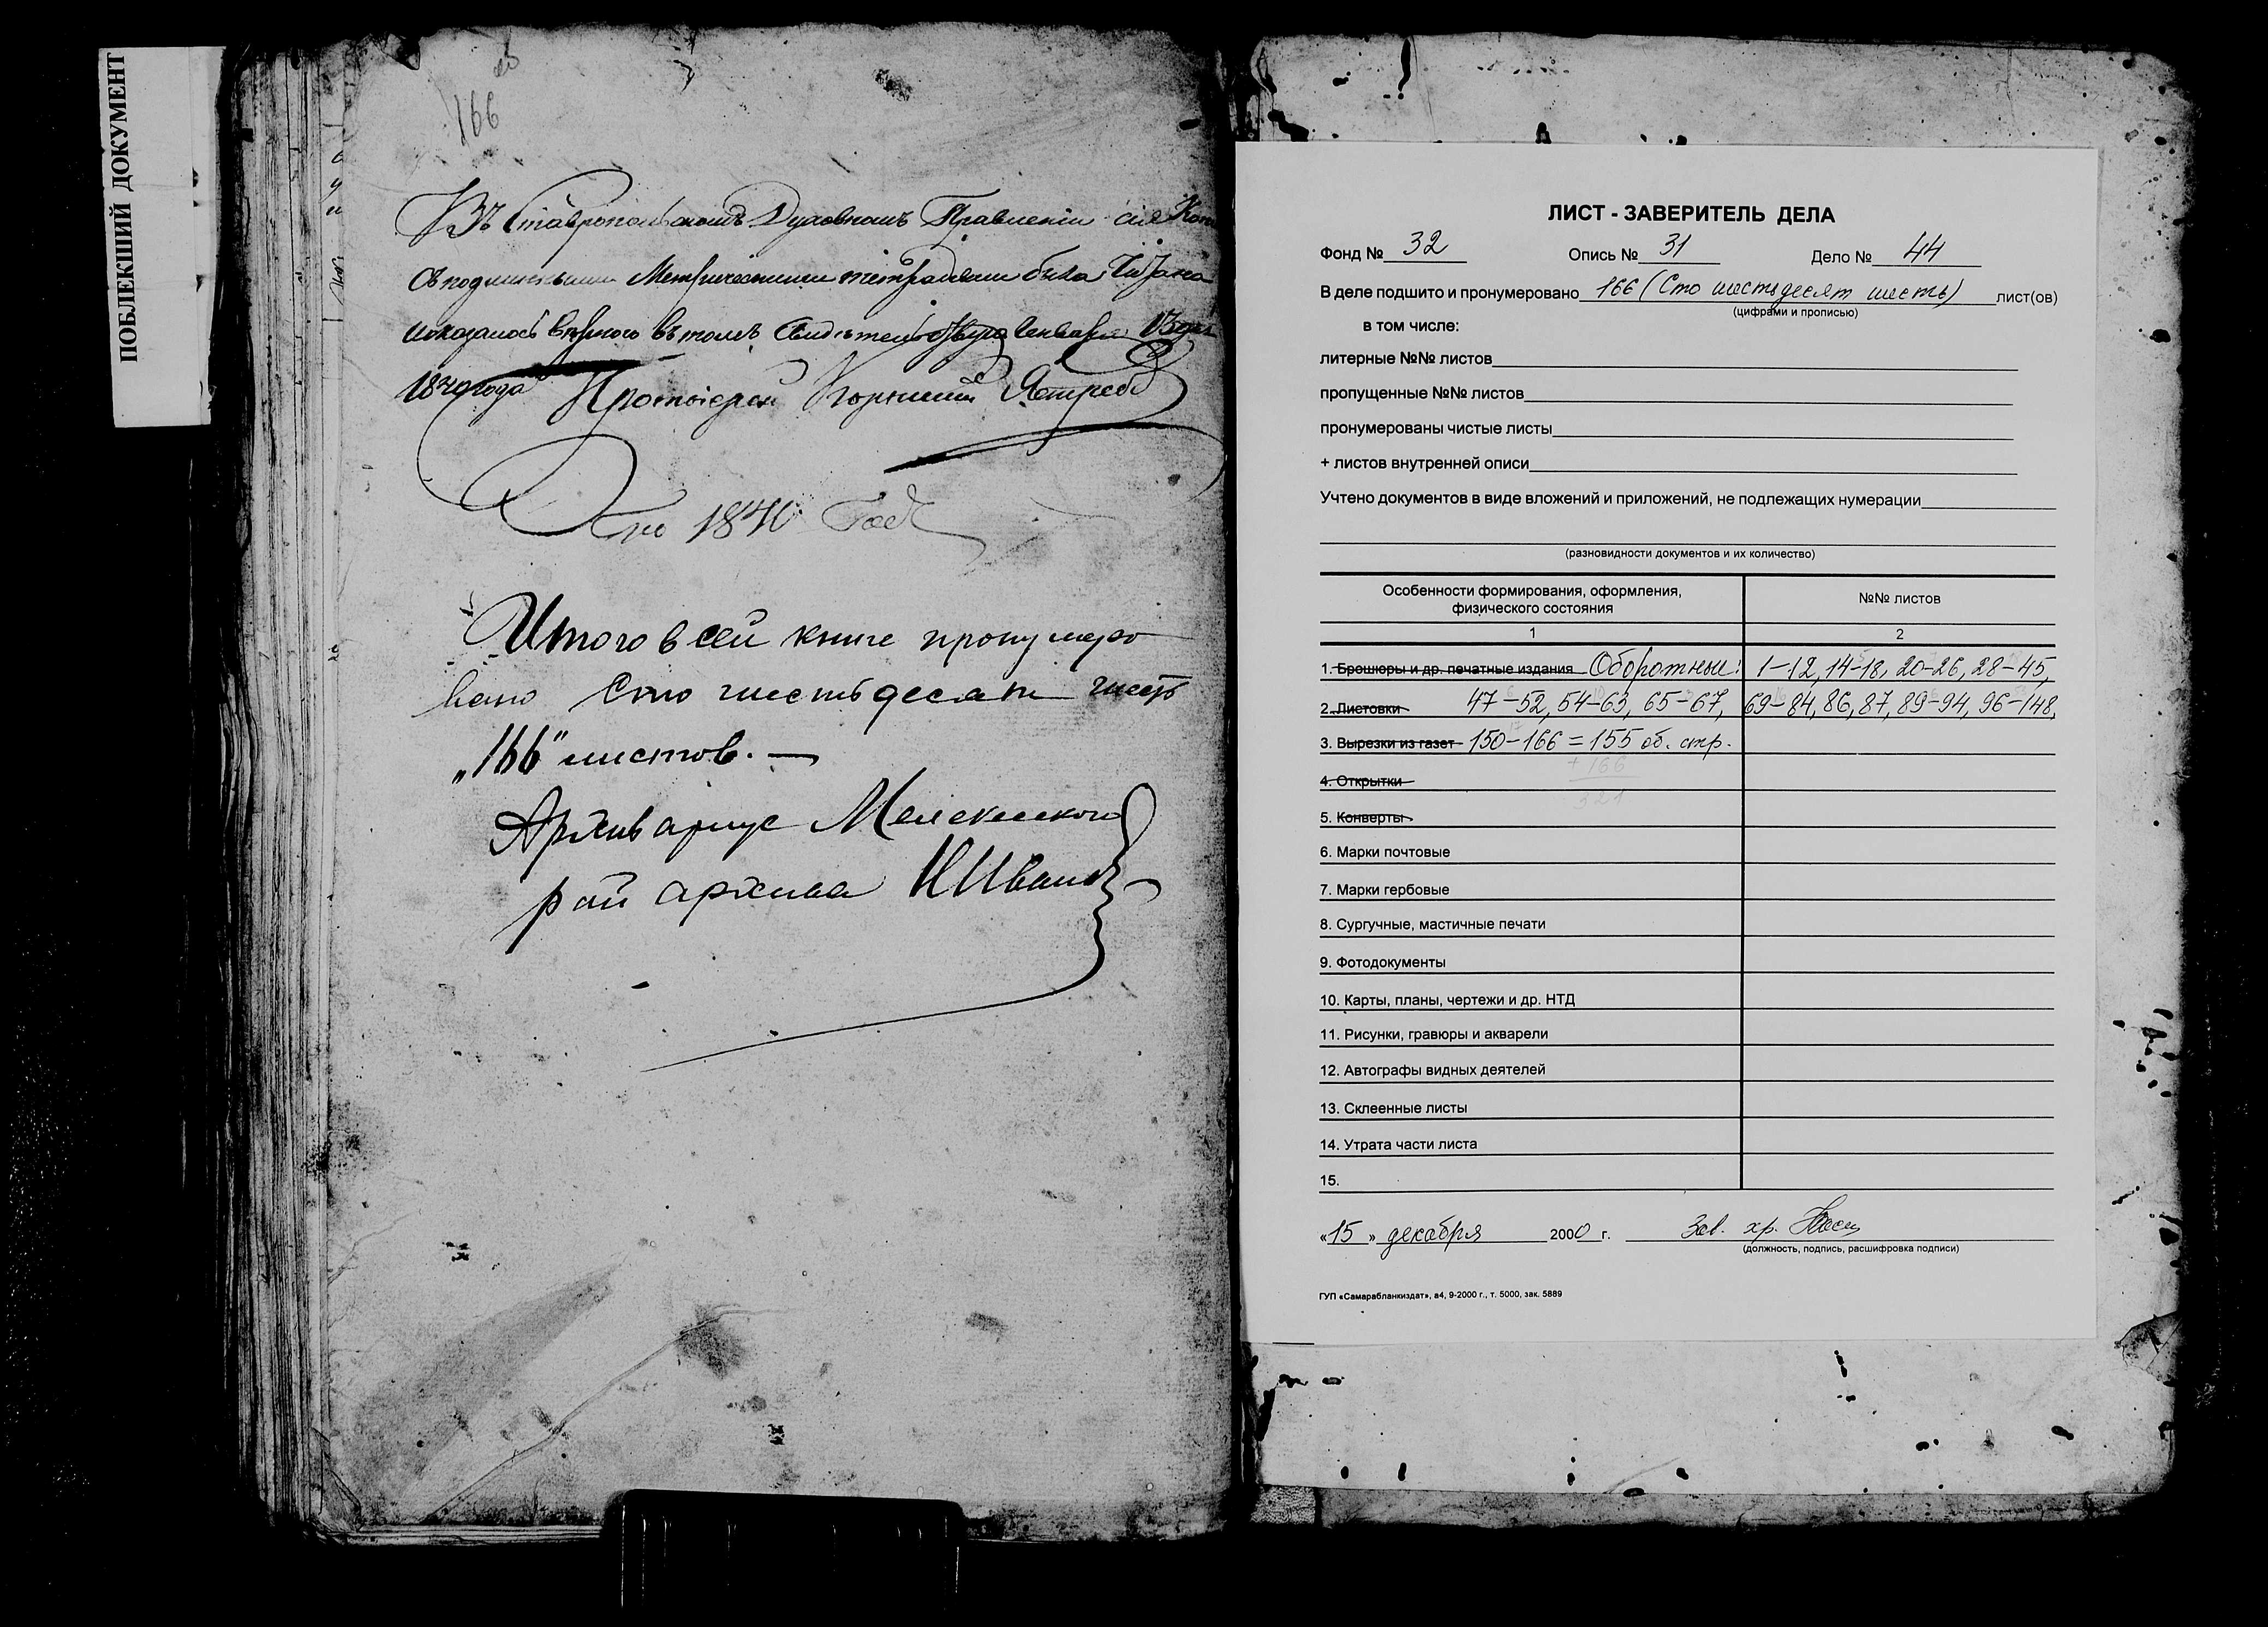 ПОБЛЕКШИЙ ДОКУМЕНТ
166
Въ Ставропольскомъ Духовномъ Правленіи сія Коп
съ подлинными Метрическими тетрадями была
показалось вѣрного въ томъ Свидѣтельствую Генваря 13 дня
1840 года Протоіерей Корнилий Ястребо
по 1840 Годъ
Итого в сей книге пронумеро
вано сто шестьдесят шесть
„166" листов. —
Архивариус Мелекесского
рай архива Н Иванов
ЛИСТ - ЗАВЕРИТЕЛЬ ДЕЛА
Фонд № 32 Опись № 31 Дело № 44
В деле подшито и пронумеровано 166 (Сто шестьдесят шесть) лист(ов)
(цифрами и прописью)
в том числе:
литерные №№ листов
пропущенные №№ листов
пронумерованы чистые листы
+ листов внутренней описи
Учтено документов в виде вложений и приложений, не подлежащих нумерации
(разновидности документов и их количество)
Особенности формирования, оформления, №№ листов
физического состояния
1 2
1. Брошюры и др. печатные издания Оборотные: 1-12, 14-18, 20-26, 28-45,
2. Листовки 47-52, 54-63, 65-67, 69-84, 86, 87, 89-94, 96-148,
3. Вырезки из газет 150-166 = 155 об. стр.
+ 166
4. Открытки
321
5. Конверты
6. Марки почтовые
7. Марки гербовые
8. Сургучные, мастичные печати
9. Фотодокументы
10. Карты, планы, чертежи и др. НТД
11. Рисунки, гравюры и акварели
12. Автографы видных деятелей
13. Склеенные листы
14. Утрата части листа
15.
«15» декабря 2000 г. Зав. хр.
(должность, подпись, расшифровка подписи)
ГУП «Самарабланкиздат», а4, 9-2000 г., т. 5000, зак. 5889